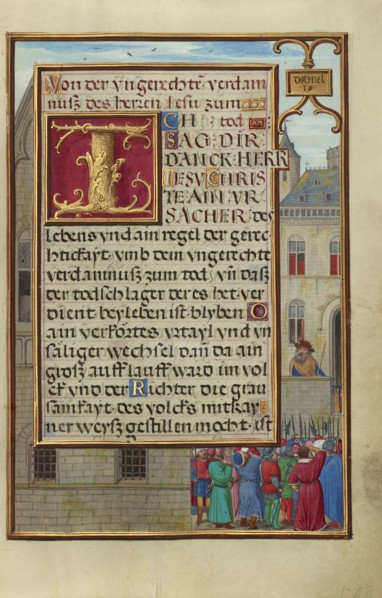 DANIEL
19
Von der vngerechtē verdam
nusz des herren Iesu zum
tod
ICH
SAG DIR
DANCK HERR
IESV CHRIS
TE AIN VR
SACHER des
lebens vnd ain regel der gerec
htickayt vmb dein vngerechte
verdamnusz zum tod vn̄ dasz
der todschlager der es het ver
dient bey leben ist blyben O
ain verkortes vrtayl vnd vn
säliger wechsel dan̄ da ain
grosz aufflauff ward im vol
ck vnd der Richter die grau
samkayt des volcks mit kay
ner weysz gestillen mocht ist